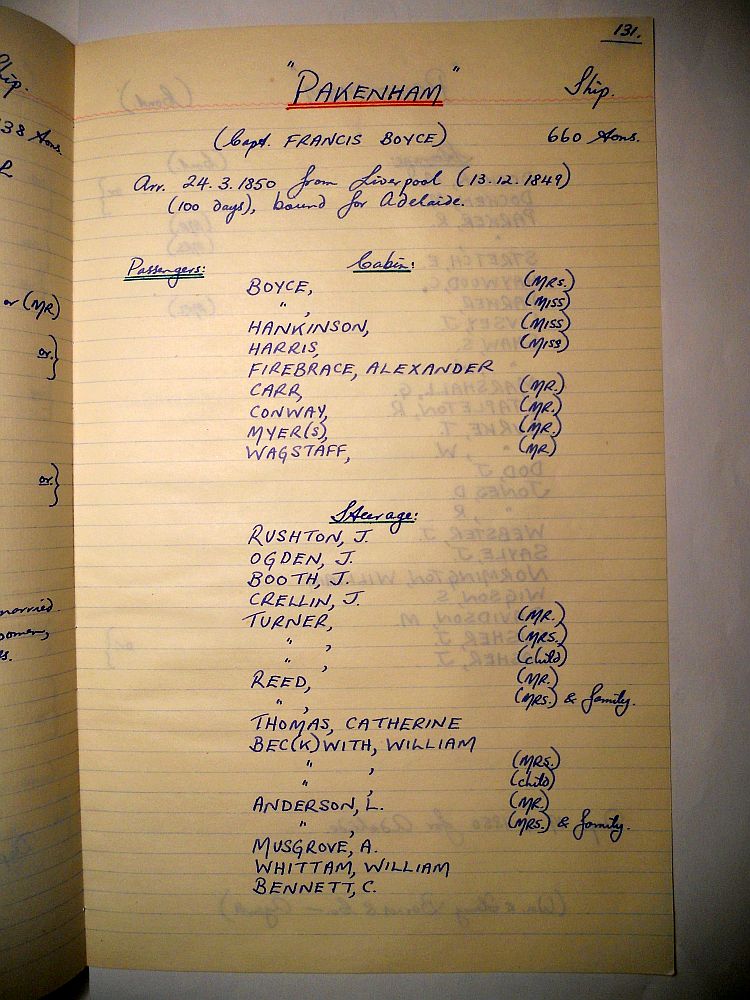 131.
"PAKENHAM" Ship.
(Capt. FRANCIS BOYCE) 660 tons.
Arr. 24.3.1850 from Liverpool (13.12.1849)
(100 days), bound for Adelaide.
Passengers: Cabin:
BOYCE, (MRS.)
" , (MISS)
HANKINSON, (MISS)
HARRIS, (MISS)
FIREBRACE, ALEXANDER
CARR, (MR.)
CONWAY, (MR.)
MYER(S), (MR.)
WAGSTAFF, (MR)
Steerage:
RUSHTON, J.
OGDEN, J.
BOOTH, J.
CRELLIN, J.
TURNER, (MR.)
" , (MRS.)
" , (child)
REED, (MR.)
" , (MRS.) & family.
THOMAS, CATHERINE
BEC(K)WITH, WILLIAM
" , (MRS.)
" , (child)
ANDERSON, L. (MR.)
" , (MRS.) & family.
MUSGROVE, A.
WHITTAM, WILLIAM
BENNETT, C.
Ship.
38 tons.
or (MR)
or.}
or.}
married.